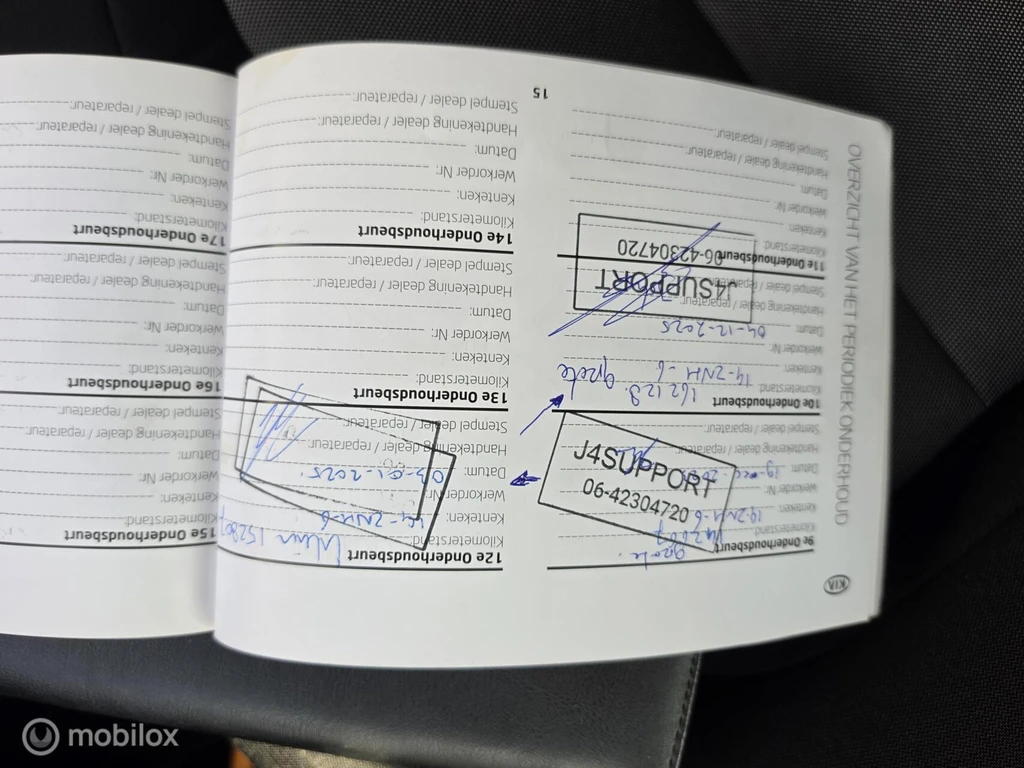 KIA
OVERZICHT VAN HET PERIODIEK ONDERHOUD
9e Onderhoudsbeurt
Kilometerstand:
Kenteken: 14-ZNH-6
Werkorder Nr:
Datum:
Handtekening dealer / reparateur:
Stempel dealer / reparateur:
J4SUPPORT
06-42304720
10e Onderhoudsbeurt
Kilometerstand: 162128. grote
Kenteken: 14-ZNH-6
Werkorder Nr:
Datum: 04-12-2025
Handtekening dealer / reparateur:
Stempel dealer / reparateur:
J4SUPPORT
06-42304720
11e Onderhoudsbeurt
Kilometerstand:
Kenteken:
Werkorder Nr:
Datum:
Handtekening dealer / reparateur:
Stempel dealer / reparateur:
12e Onderhoudsbeurt
Kilometerstand:
Kenteken: 14-ZNH-6
Werkorder Nr:
Datum: 03-01-2025
Handtekening dealer / reparateur:
Stempel dealer / reparateur:
13e Onderhoudsbeurt
Kilometerstand:
Kenteken:
Werkorder Nr:
Datum:
Handtekening dealer / reparateur:
Stempel dealer / reparateur:
14e Onderhoudsbeurt
Kilometerstand:
Kenteken:
Werkorder Nr:
Datum:
Handtekening dealer / reparateur:
Stempel dealer / reparateur:
15
15e Onderhoudsbeurt
Kilometerstand:
Kenteken:
Werkorder Nr:
Datum:
Handtekening dealer / reparateur:
Stempel dealer / reparateur:
16e Onderhoudsbeurt
Kilometerstand:
Kenteken:
Werkorder Nr:
Datum:
Handtekening dealer / reparateur:
Stempel dealer / reparateur:
17e Onderhoudsbeurt
Kilometerstand:
Kenteken:
Werkorder Nr:
Datum:
Handtekening dealer / reparateur:
Stempel dealer / reparateur:
mobilox